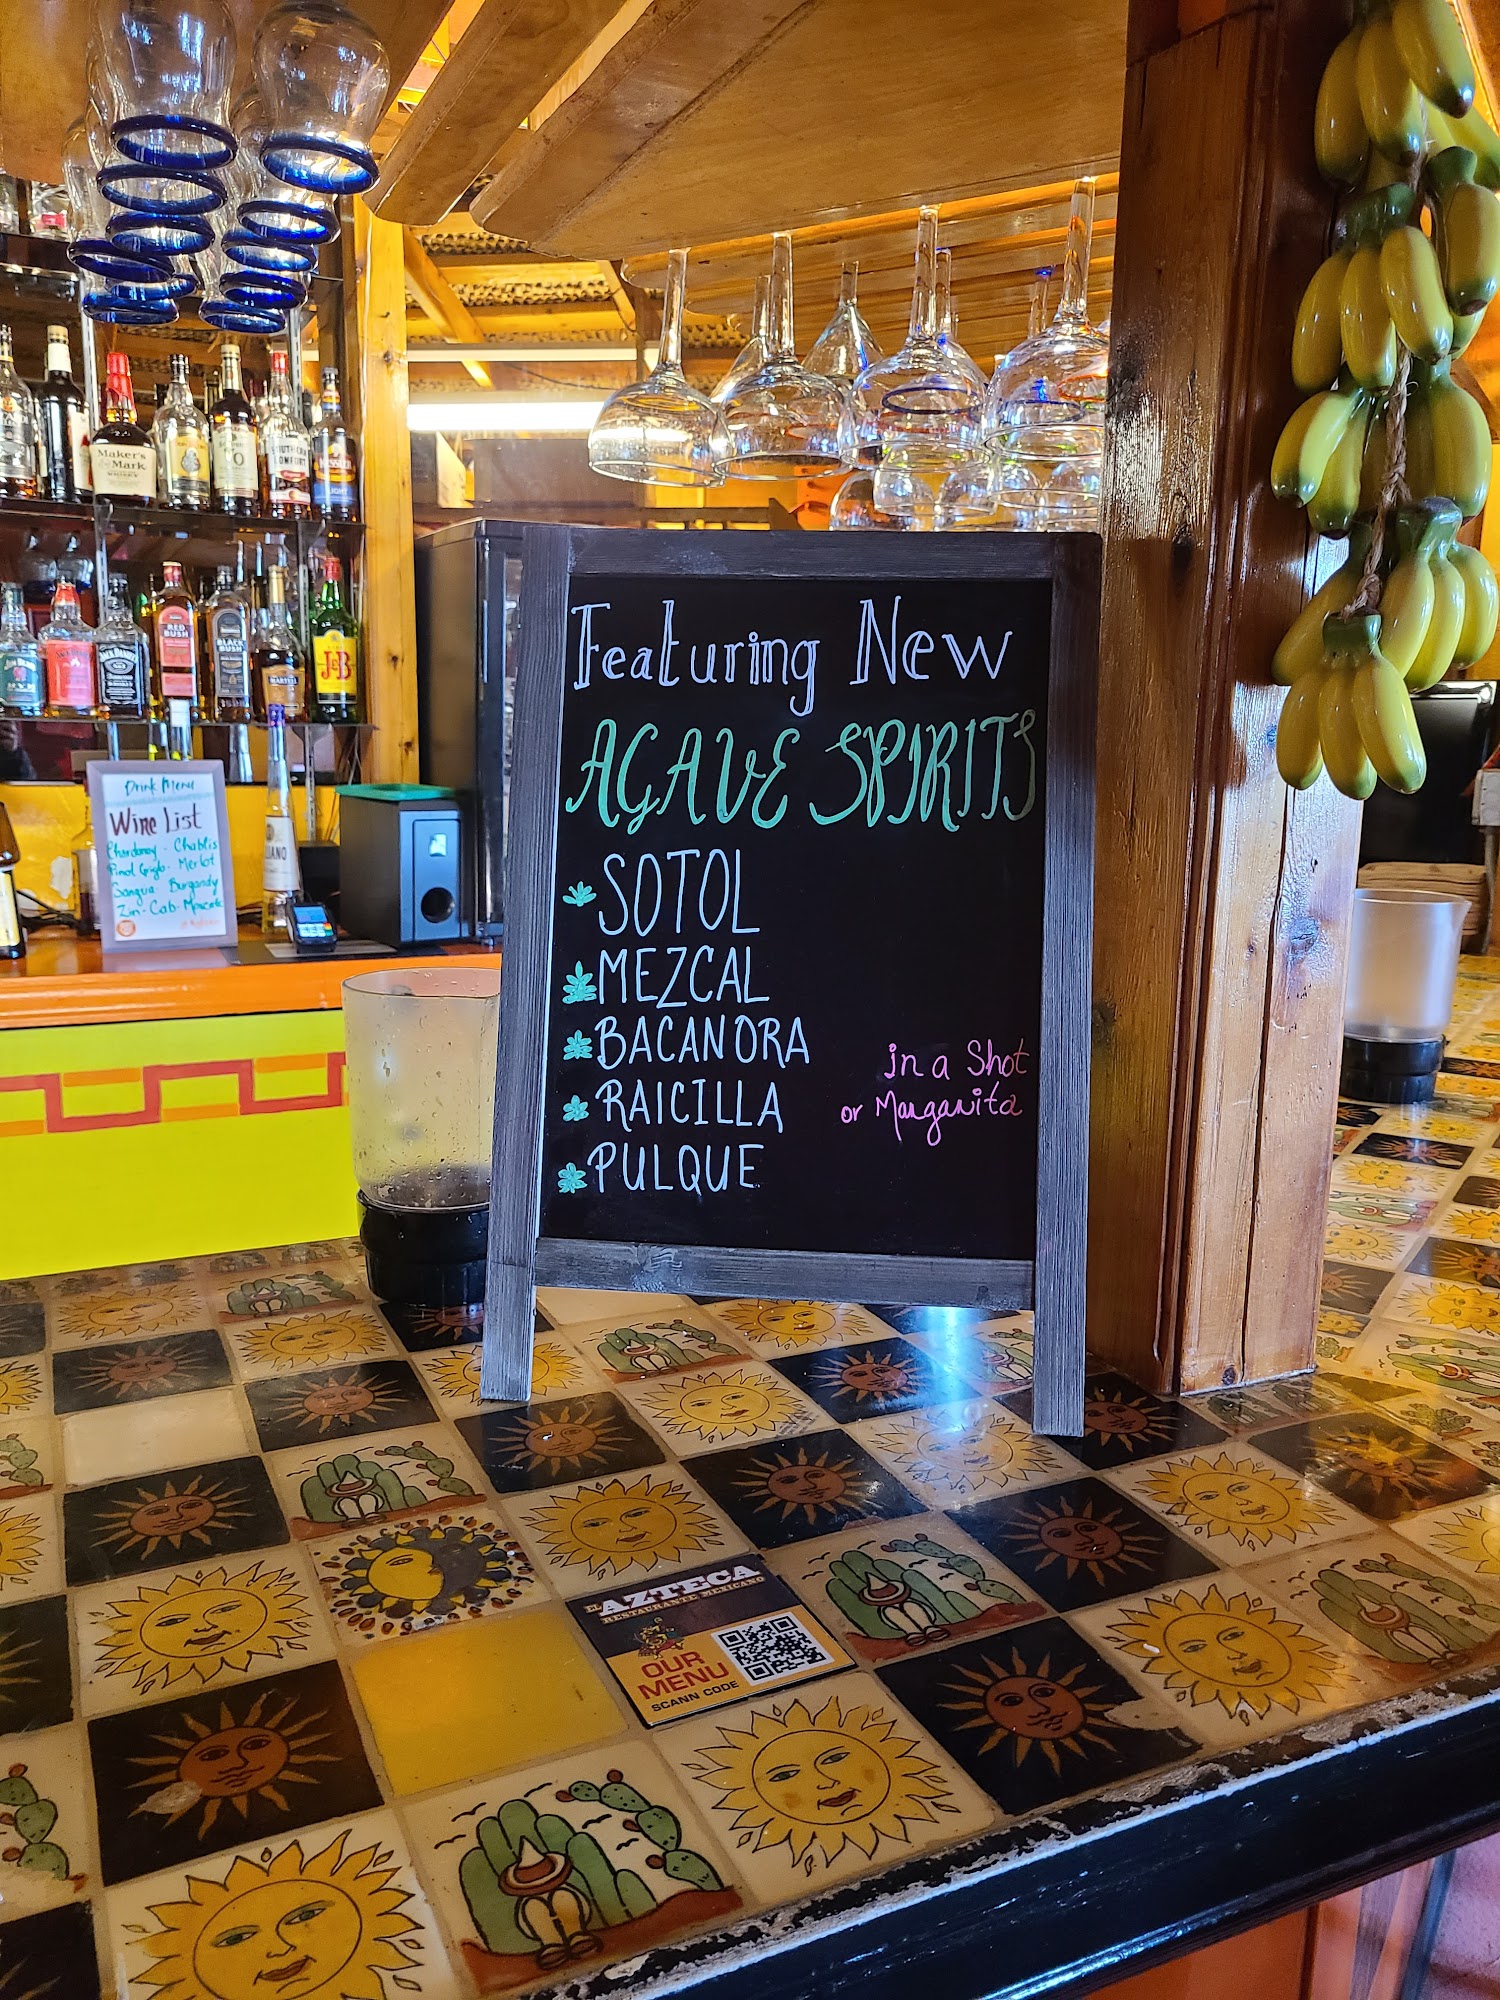 Featuring New
AGAVE SPIRITS
SOTOL
MEZCAL
BACANORA
RAICILLA
PULQUE
in a Shot
or Marganita
Drink Menu
Wine List
Chardonay - Chablis
Pinot Grigio - Merlot
Sangria Burgandy
Zin - Cab - Moscato
Maker's
Mark
SOUTHERN
COMFORT
RED
BUSH
BLACK
BUSH
MARTELL
J&B
EL AZTECA
RESTAURANTE MEXICANO
OUR
MENU
SCANN CODE